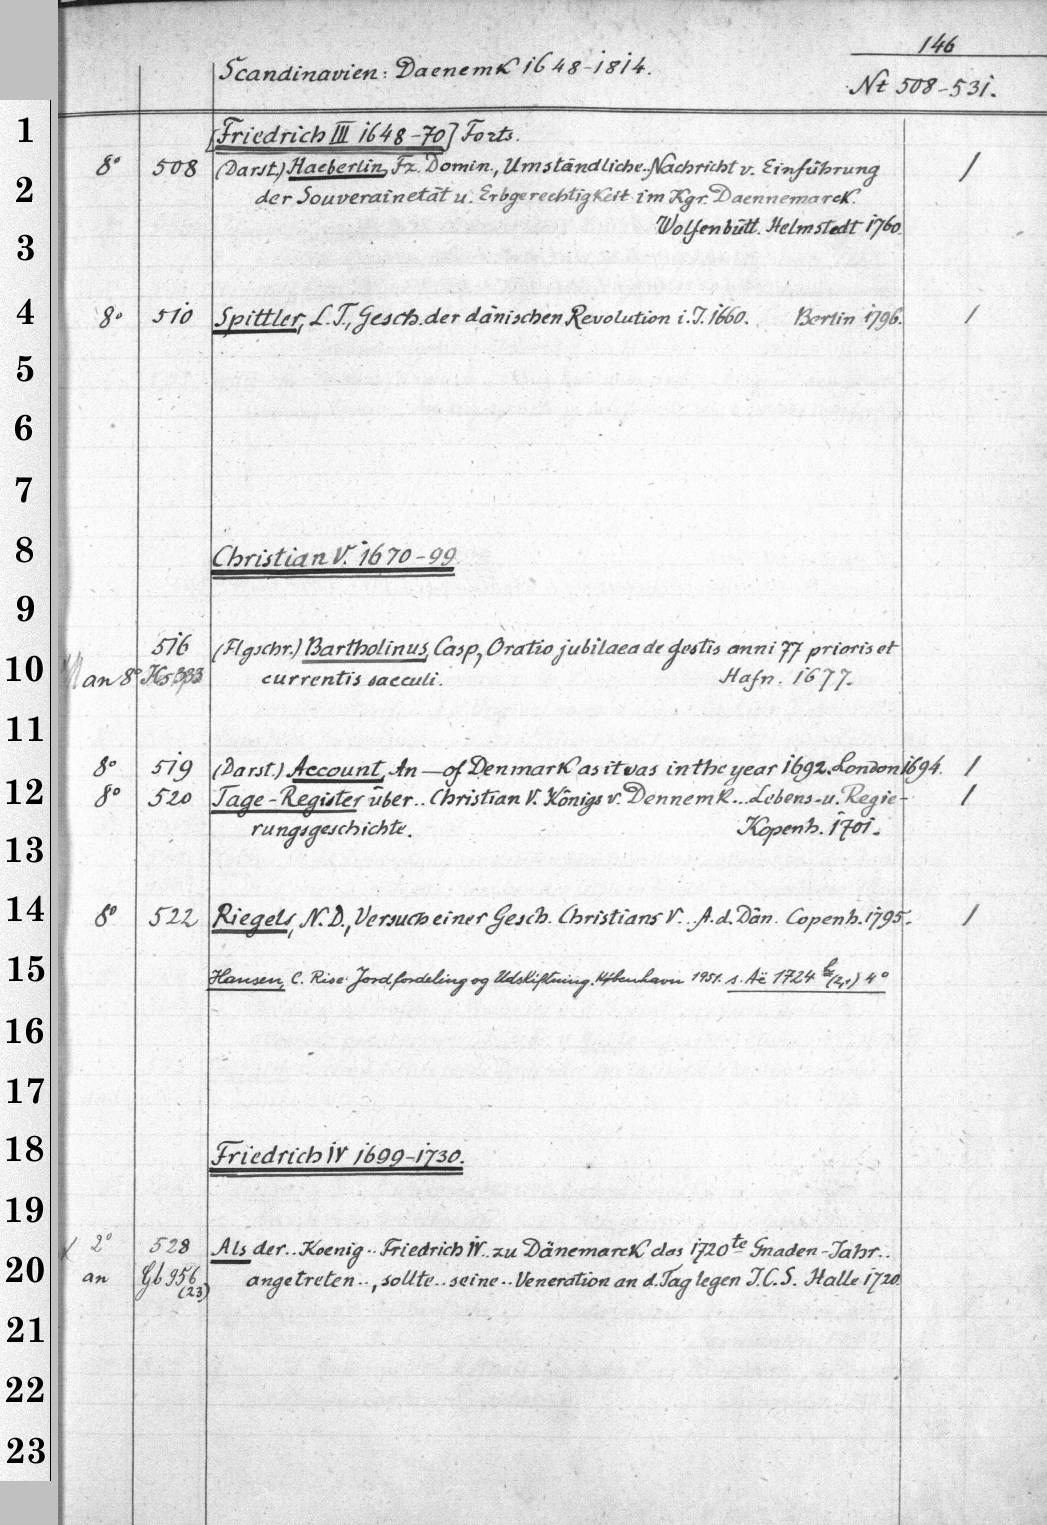 146
Scandinavien: Daenemk 1648-1814.
Nt 508-531.
1
[Friedrich III 1648-70] Forts.
8° 508 (Darst.) Haeberlin, Fz. Domin., Umständliche.. Nachricht v. Einführung /
2
der Souverainetät u. Erbgerechtigkeit im Kgr. Daennemarck.
Wolfenbütt. Helmstedt 1760.
3
4
8° 510 Spittler, L.T., Gesch. der dänischen Revolution i.J. 1660. Berlin 1796. /
5
6
7
8
Christian V. 1670-99
9
516 (Flgschr.) Bartholinus, Casp., Oratio jubilaea de gestis anni 77 prioris et
10
an 8° currentis saeculi. Hafn. 1677.
11
8° 519 (Darst.) Account, An — of Denmark as it was in the year 1692. London 1694. /
12
8° 520 Tage-Register über.. Christian V. Königs v. Dennemk... Lebens- u. Regie- /
rungsgeschichte. Kopenh. 1701.
13
14
8° 522 Riegels, N.D., Versuch einer Gesch. Christians V.. A.d. Dän. Copenh. 1795. /
15
Hansen, C. Rise: Jordfordeling og Udskiftning. København 1951. s. Aë 1724 (2,1) 4°
16
17
18
Friedrich IV 1699-1730.
19
2° 528 Als der.. Koenig.. Friedrich IV. zu Dänemarck das 1720te Gnaden-Jahr..
20
an Gb 956 (23) angetreten.., sollte.. seine.. Veneration an d. Tag legen J.C.S. Halle 1720
21
22
23